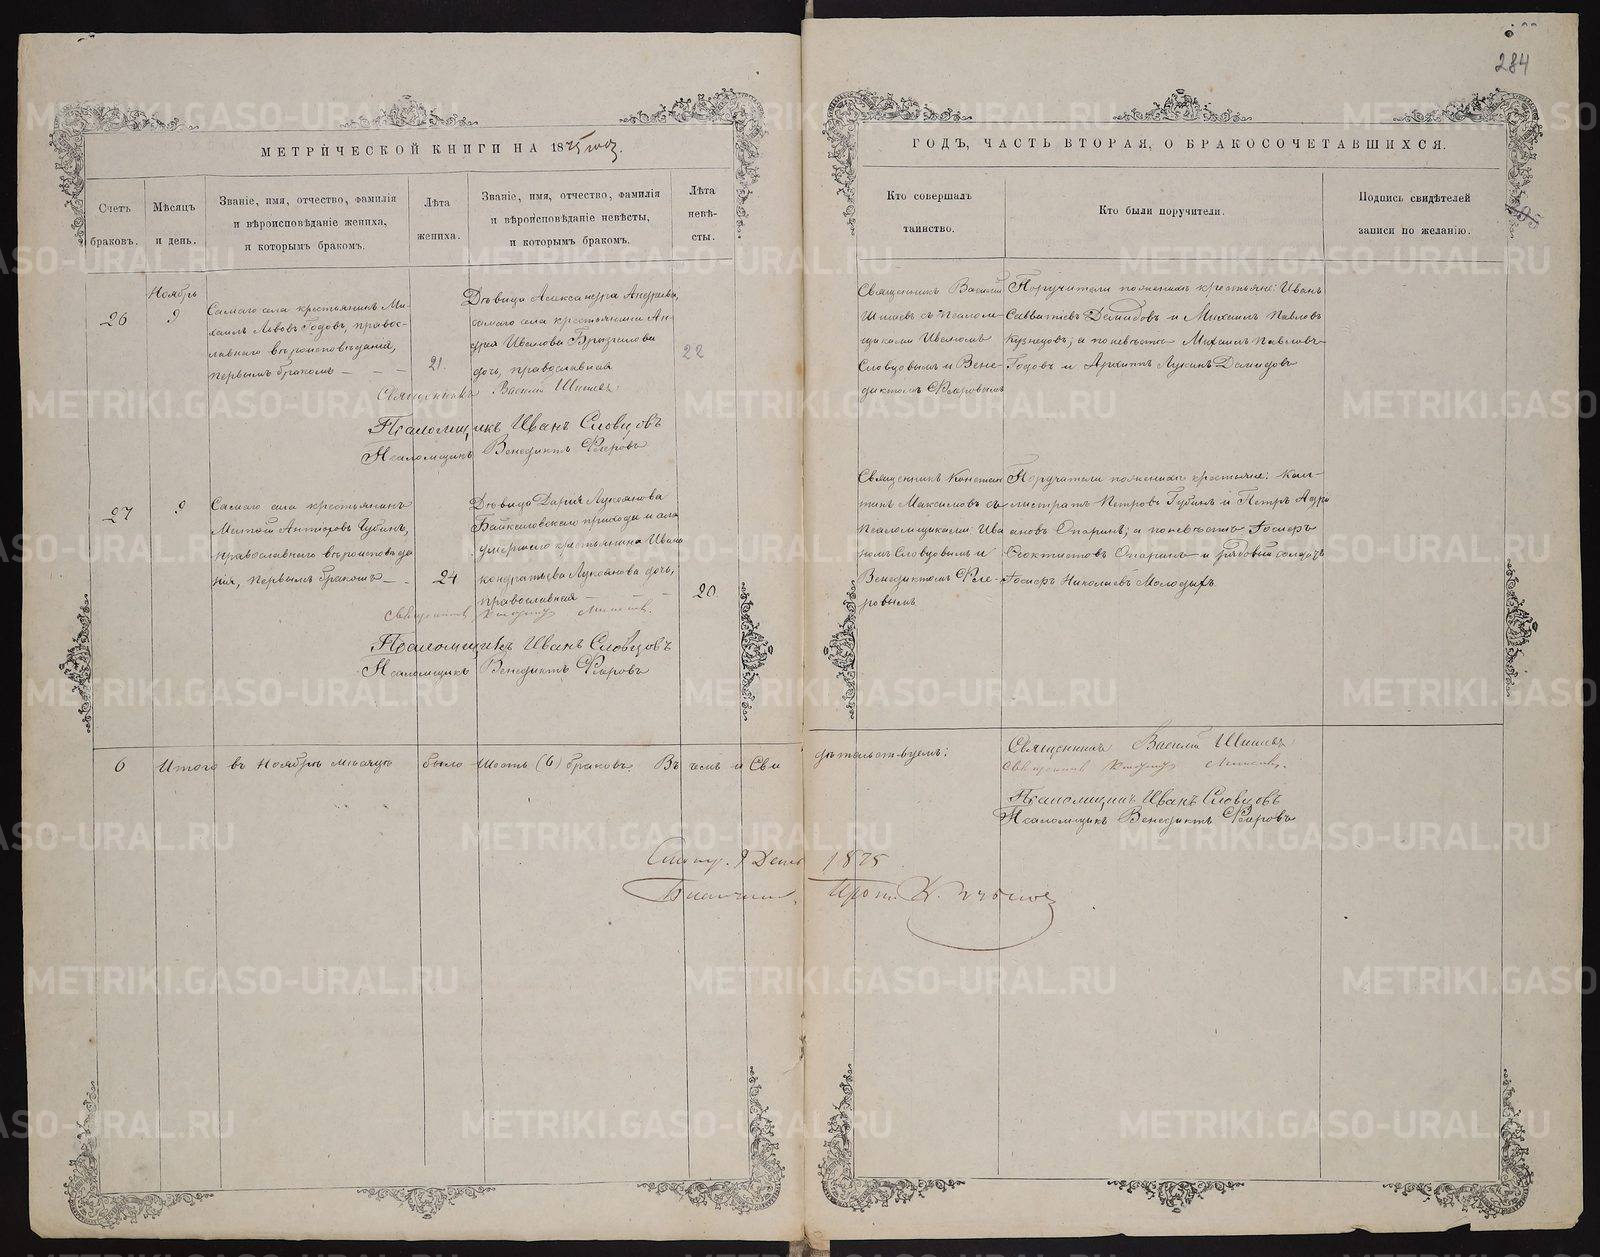 284
МЕТРИЧЕСКОЙ КНИГИ НА 1875 годъ.
Счетъ браковъ.
Мѣсяцъ и день.
Званіе, имя, отчество, фамилія
и вѣроисповѣданіе жениха,
и которымъ бракомъ.
Лѣта
жениха.
Званіе, имя, отчество, фамилія
и вѣроисповѣданіе невѣсты,
и которымъ бракомъ.
Лѣта
невѣ-
сты.
26
Ноябрь
9
Самаго села крестьянинъ Ми-
хаилъ Львовъ Годовъ, правос-
лавнаго вѣроисповѣданія,
первымъ бракомъ — — —
21.
Дѣвица Александра Андреева,
самаго села крестьянина Ан-
дрея Иванова
дочь, православная
22
Священникъ Василій
Псаломщикъ Иванъ Словцовъ
Псаломщикъ Венедиктъ Флеровъ
27
9
Самаго села крестьянинъ
Губинъ,
православнаго вѣроисповѣда-
нія, первымъ бракомъ —
24
Дѣвица Дарья Лукоянова
Байкаловскаго прихода и села
умершаго крестьянина Ивана
Кондратьева Лукоянова дочь,
православная —
20.
Псаломщикъ Иванъ Словцовъ
Псаломщикъ Венедиктъ Флеровъ
6
Итого въ Ноябрѣ мѣсяцѣ было шесть (6) браковъ. Въ чемъ и Сви
ГОДЪ, ЧАСТЬ ВТОРАЯ, О БРАКОСОЧЕТАВШИХСЯ.
Кто совершалъ
таинство.
Кто были поручители.
Подпись свидѣтелей
записи по желанію.
Священникъ Василій
съ псалом-
щиками Иваномъ
Словцовымъ и Вене-
диктомъ Флеровымъ
Поручители по женихѣ крестьяне: Иванъ
Савватіевъ Демидовъ и Михаилъ Павловъ
Кузнецовъ; а по невѣстѣ Михаилъ Павловъ
Годовъ и Архиппъ Лукинъ Демидовъ
Священникъ Констан
тинъ Максимовъ съ
Псаломщиками Ива
номъ Словцовымъ и
Венедиктомъ Фле-
ровымъ.
Поручители по женихѣ крестьяне: Кал-
листратъ Петровъ Губинъ и Петръ Андри
ановъ Опаринъ; а по невѣстѣ Іосифъ
Ѳеоктистовъ Опаринъ и рядовый солдатъ
Іосифъ Николаевъ Молодыхъ.
дѣтельствуемъ:
Священникъ Василій
Псаломщикъ Иванъ Словцовъ
Псаломщикъ Венедиктъ Флеровъ
9 Дек. 1875
METRIKI.GASO-URAL.RU